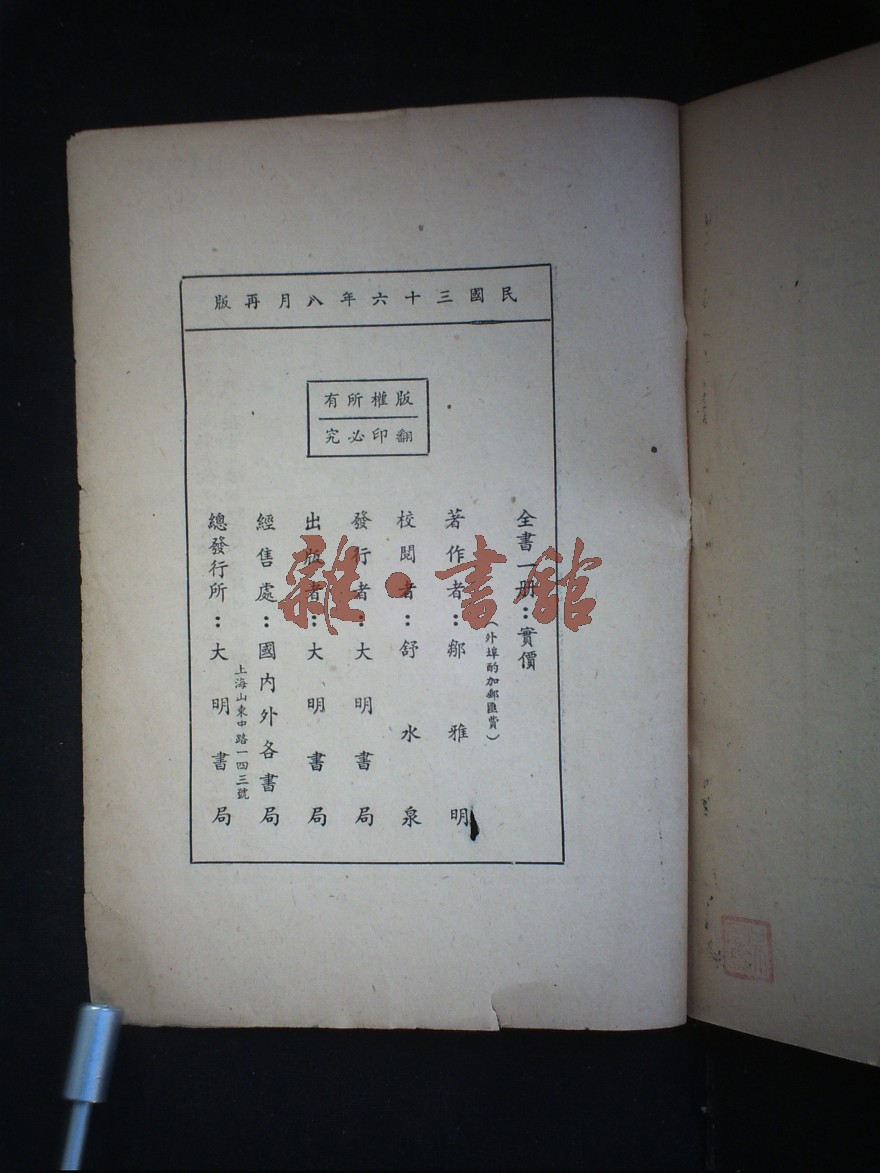 民國三十六年八月再版
版權所有
翻印必究
全書一册：實價
（外埠酌加郵匯費）
著作者：鄒雅明
校閱者：舒水泉
發行者：大明書局
出版者：大明書局
經售處：國內外各書局
上海山東中路一四三號
總發行所：大明書局
雜·書館